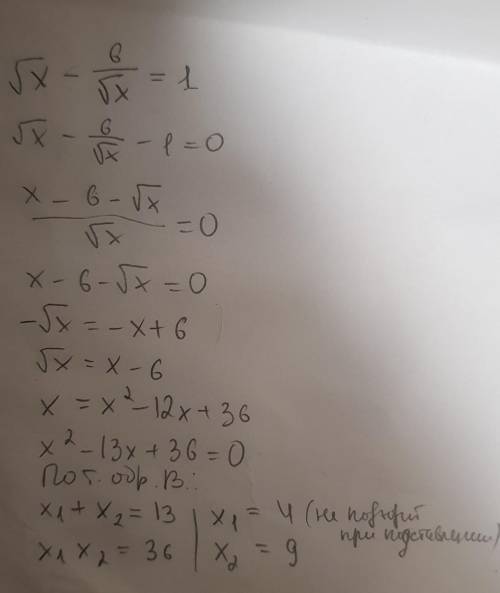 √x - 6/√x = 1
√x - 6/√x - 1 = 0
(x - 6 - √x)/√x = 0
x - 6 - √x = 0
-√x = -x + 6
√x = x - 6
x = x² - 12x + 36
x² - 13x + 36 = 0
По т. обр. В.:
x₁ + x₂ = 13 | x₁ = 4 (не подходит
при подстановке)
x₁ x₂ = 36 | x₂ = 9